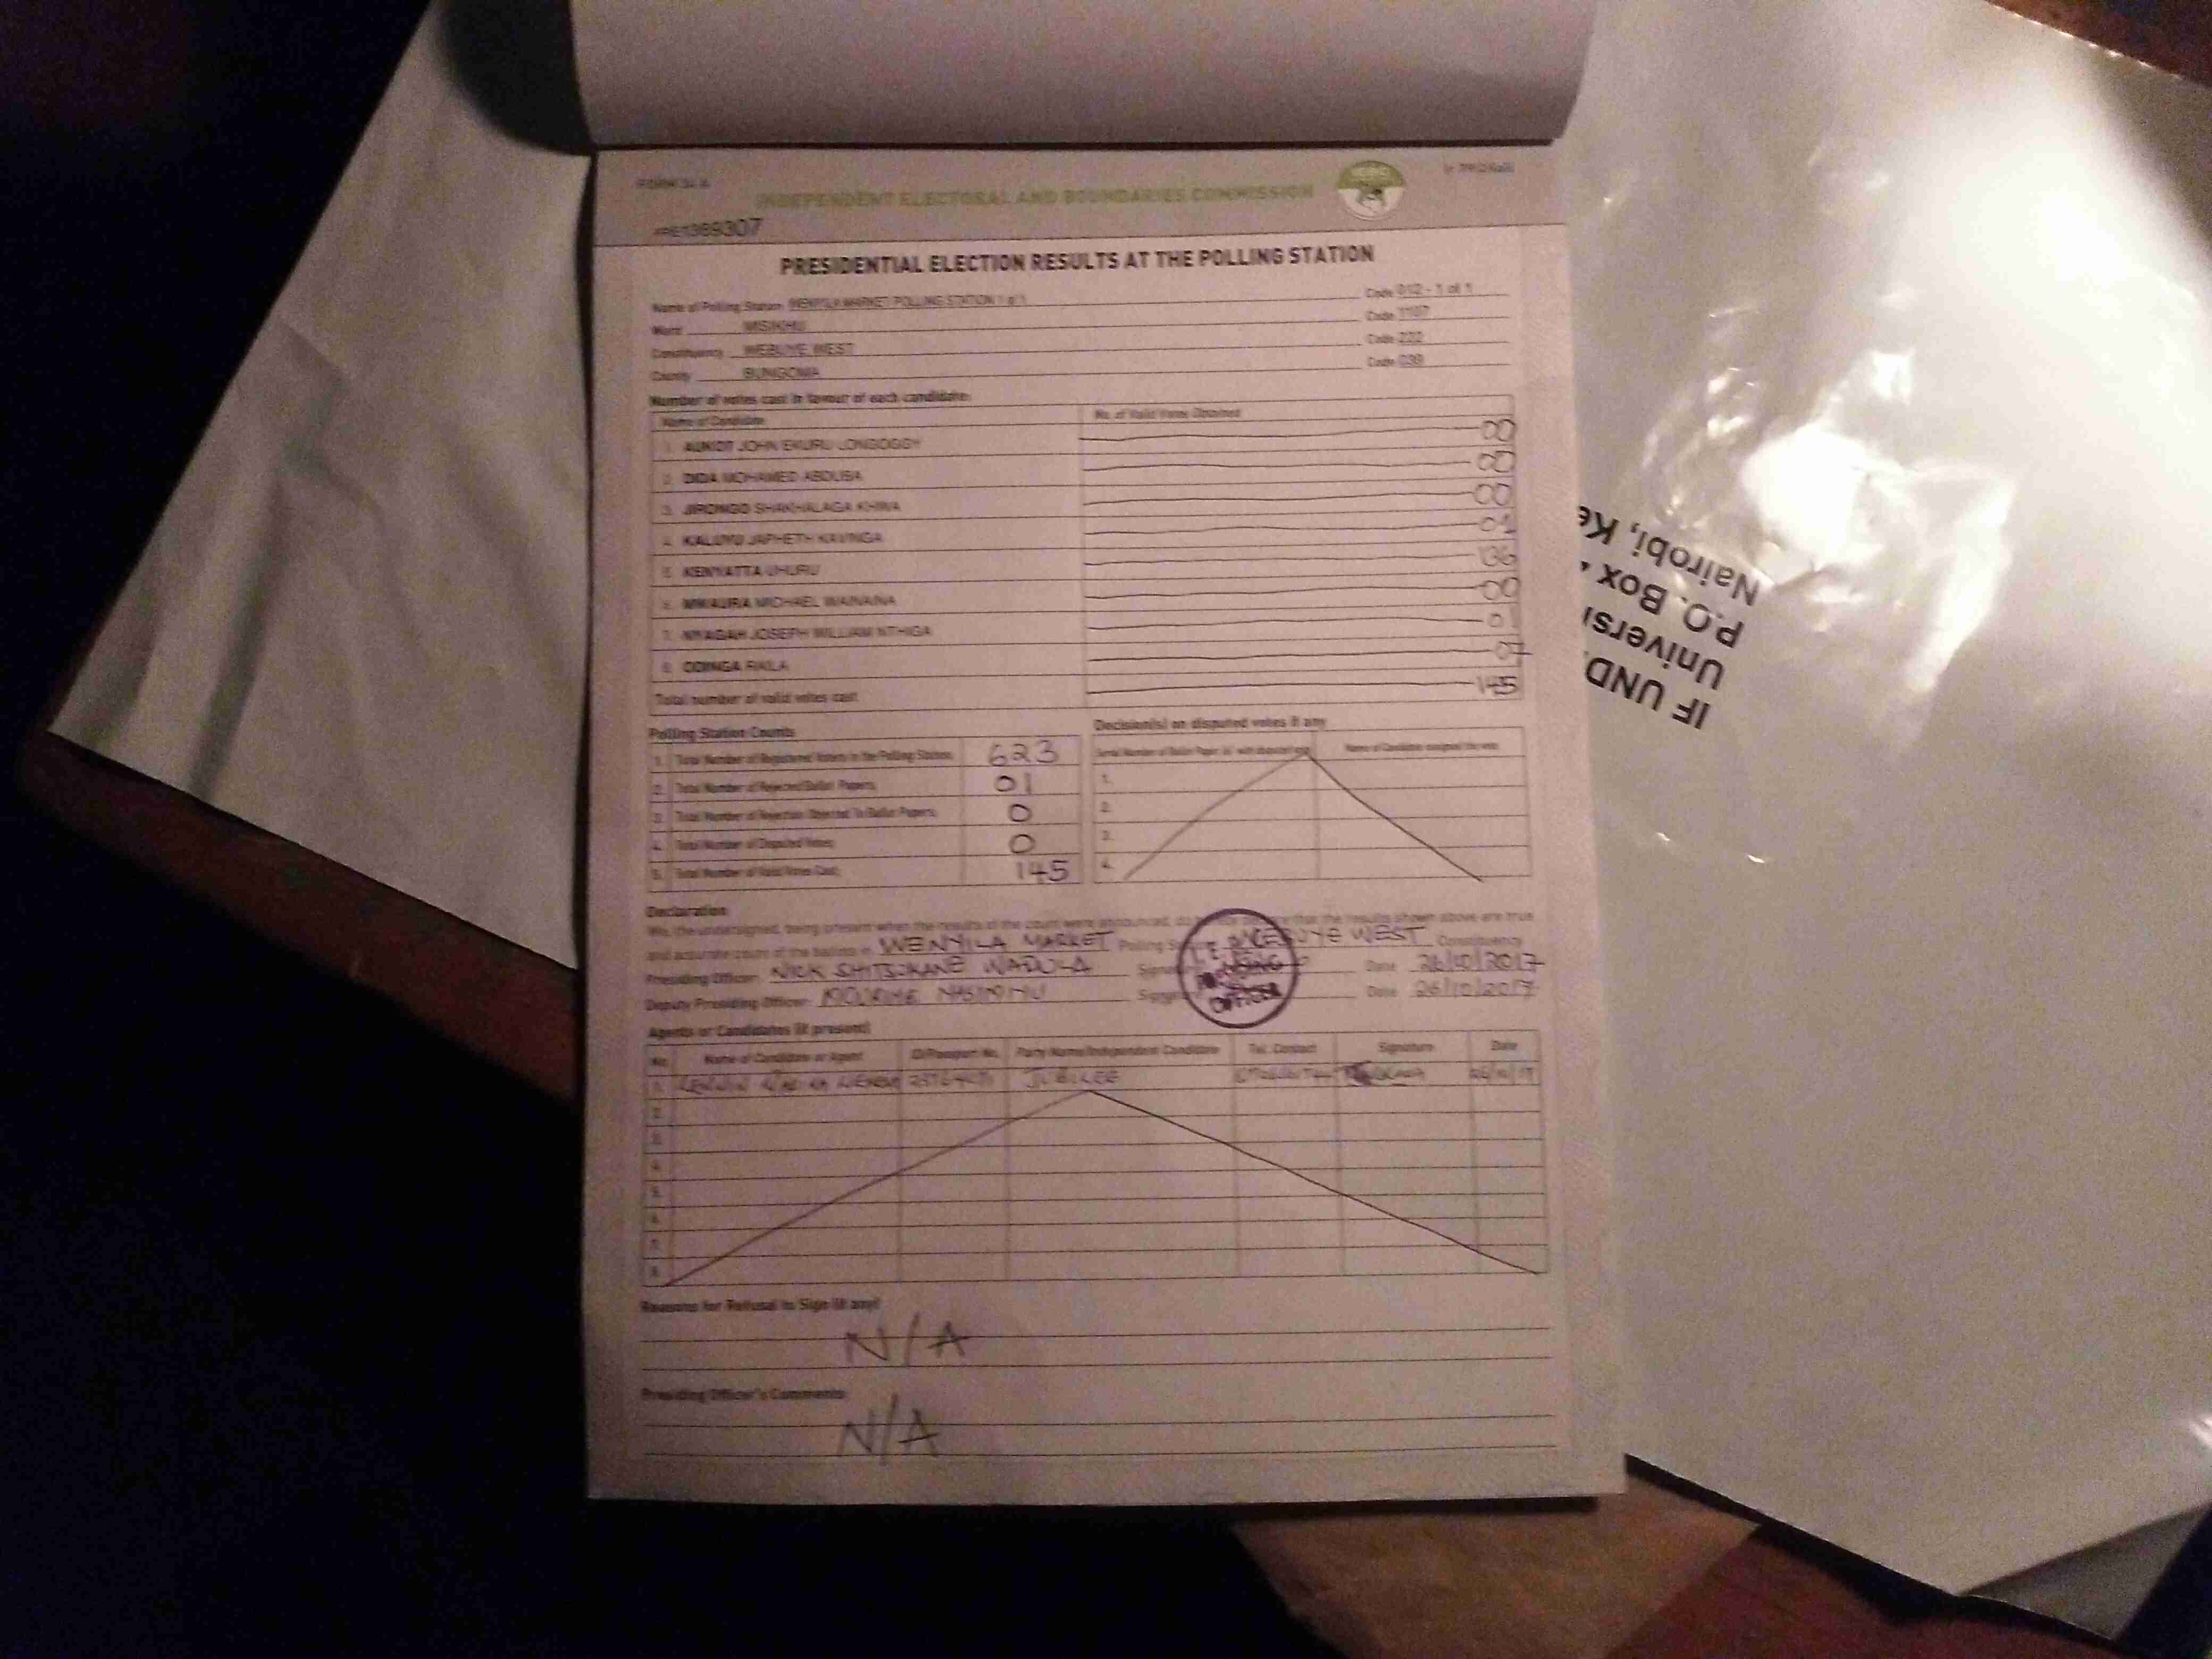 FORM 34 A
INDEPENDENT ELECTORAL AND BOUNDARIES COMMISSION
IEBC
369307
PRESIDENTIAL ELECTION RESULTS AT THE POLLING STATION
Name of Polling Station WENYILA MARKET POLLING STATION 1 of 1 Code 012 - 1 of 1
Ward MISIKHU Code 1107
Constituency WEBUYE WEST Code 222
County BUNGOMA Code 039
Number of votes cast in favour of each candidate:
Name of Candidate No. of Valid Votes Obtained
1. AUKOT JOHN EKURU LONGOGGY 00
2. DIDA MOHAMED ABDUBA 00
3. JIRONGO SHAKHALAGA KHWA 00
4. KALUYU JAPHETH KAVINGA 01
5. KENYATTA UHURU 136
6. MWAURA MICHAEL WAINAINA 00
7. NYAGAH JOSEPH WILLIAM NTHIGA 01
8. ODINGA RAILA 07
Total number of valid votes cast 145
Polling Station Counts
1. Total Number of Registered Voters in the Polling Station 623
2. Total Number of Rejected Ballot Papers 01
3. Total Number of Rejection Objected To Ballot Papers 0
4. Total Number of Disputed Votes 0
5. Total Number of Valid Votes Cast 145
Decision(s) on disputed votes if any
Serial Number of Ballot Paper Name of Candidate assigned the vote
1.
2.
3.
4.
Declaration
We, the undersigned, being present when the results of the count were announced, do that the results shown above are true
and accurate count of the ballots in WENYILA MARKET Polling WEBUYE WEST Constituency
Presiding Officer NICK SHITSUKANE WADULA Date 26/10/2017
Deputy Presiding Officer Date 26/10/2017
PRESIDING OFFICER
Agents or Candidates (if present)
No. Name of Candidate or Agent ID/Passport No. Party Name/Independent Candidate Tel. Contact Signature Date
1. JUBILEE
2.
3.
4.
5.
6.
7.
8.
Reasons for Refusal to Sign (if any)
N/A
Presiding Officer's Comments
N/A
IF UND
Univers
P.O. Box
Nairobi, Ke